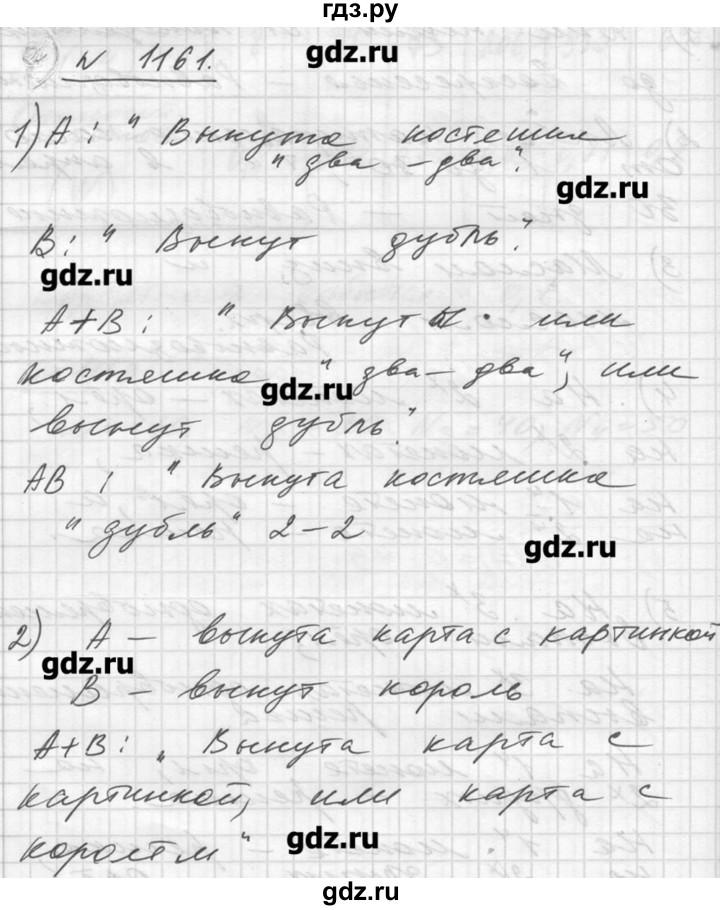 гдз.ру
N 1161.
gdz.ru
1) A : " Вынута костяшка
" два - два".
gdz.ru
B : " Вынут дубль".
gdz.ru
A+B : " Вынута или
костяшка " два - два", или
gdz.ru
вынут дубль."
AB : " Вынута костяшка
" дубль" 2-2
gdz.ru
2) A - вынута карта с картинкой
gdz.ru
B - вынут король
A+B : „ Вынута карта с
картинкой, или карта с
королем"
gdz.ru
gdz.ru